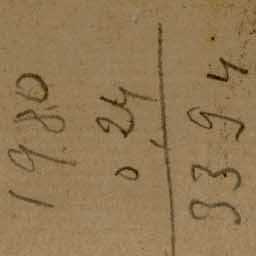 1980
0,24
3394